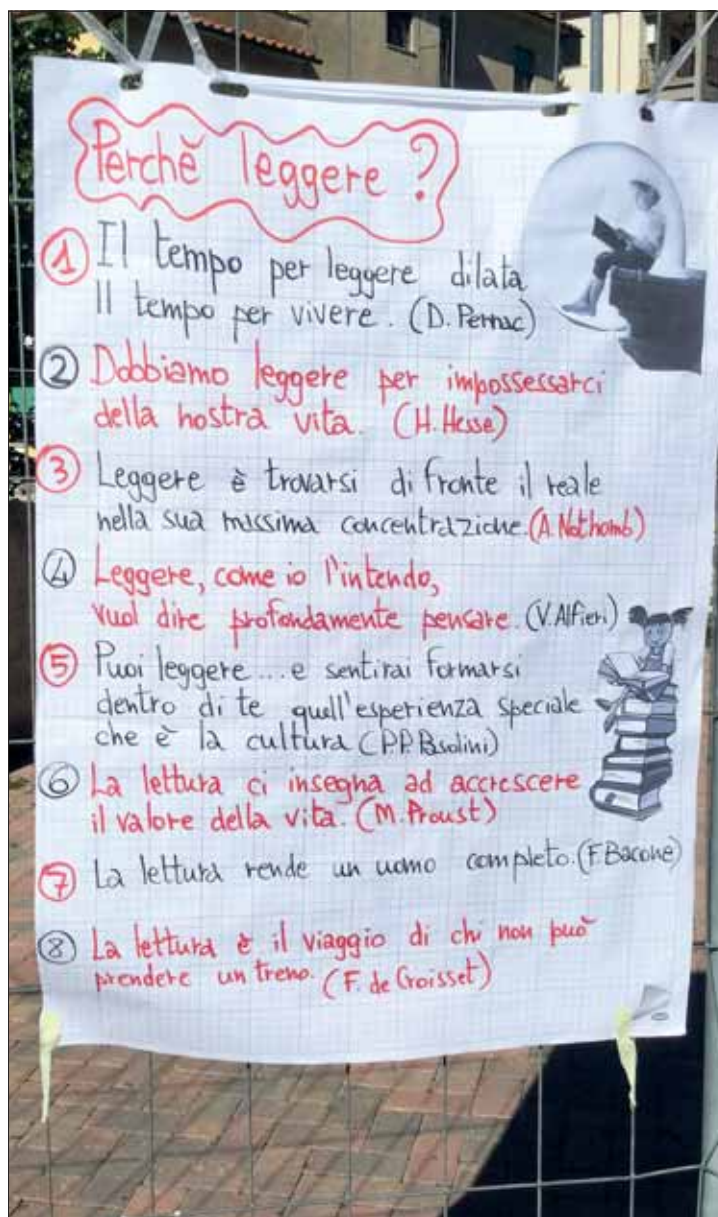 Perchè leggere ?
1 Il tempo per leggere dilata
Il tempo per vivere. (D. Pennac)
2 Dobbiamo leggere per impossessarci
della nostra vita. (H. Hesse)
3 Leggere è trovarsi di fronte il reale
nella sua massima concentrazione. (A. Nothomb)
4 Leggere, come io l'intendo,
vuol dire profondamente pensare. (V. Alfieri)
5 Puoi leggere... e sentirai formarsi
dentro di te quell'esperienza speciale
che è la cultura (P.P. Pasolini)
6 La lettura ci insegna ad accrescere
il valore della vita. (M. Proust)
7 La lettura rende un uomo completo. (F. Bacone)
8 La lettura è il viaggio di chi non può
prendere un treno. (F. de Croisset)